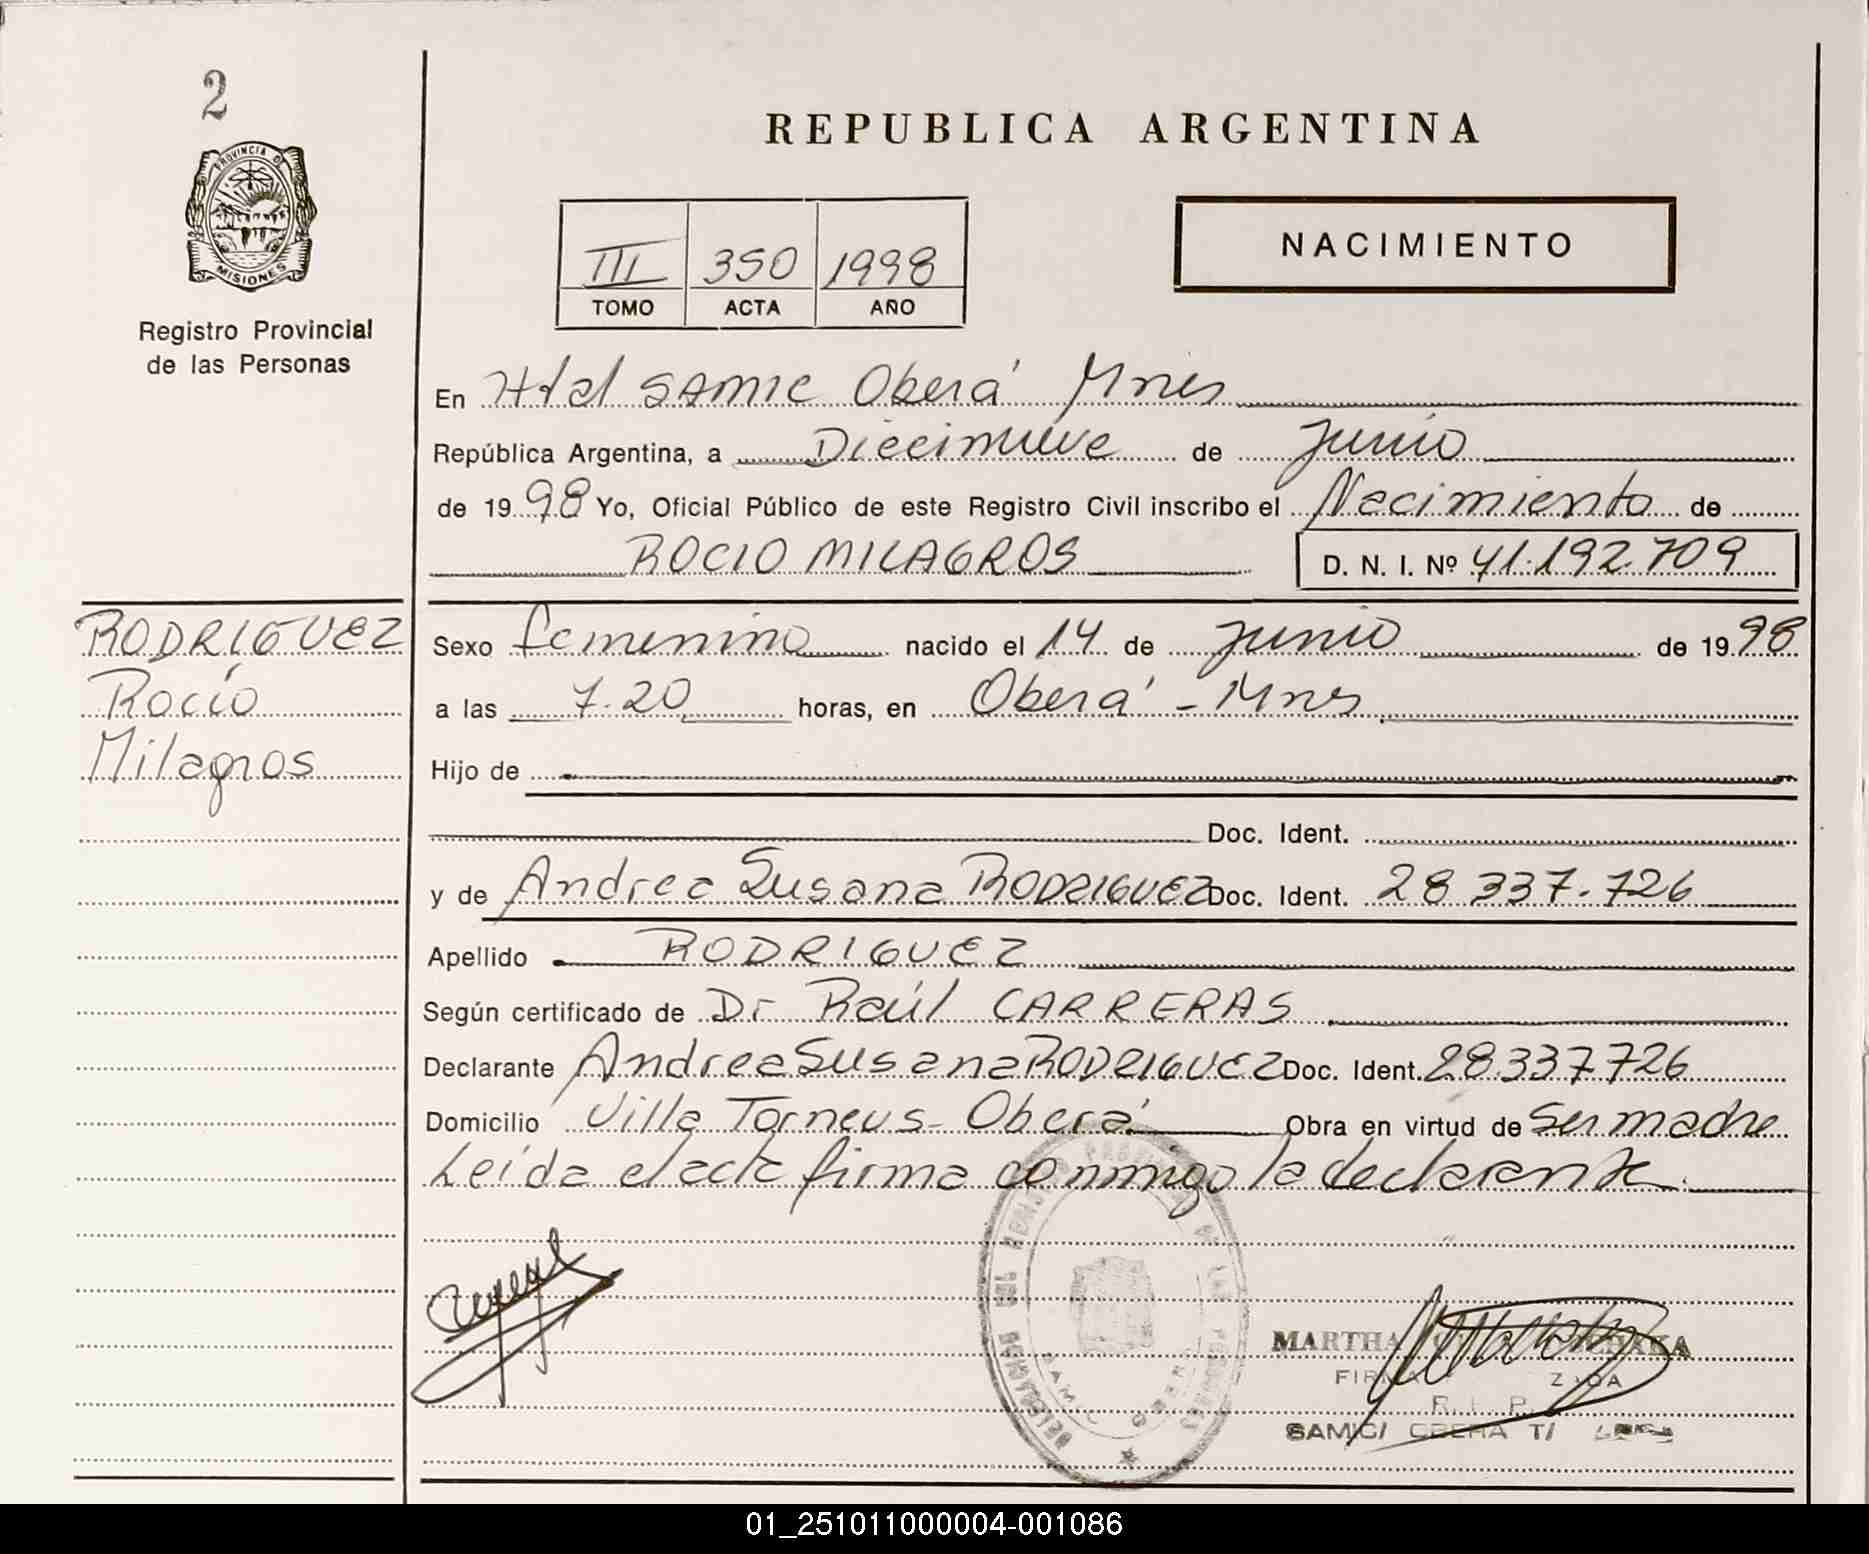 2
PROVINCIA DE
MISIONES
Registro Provincial
de las Personas
REPUBLICA ARGENTINA
III 350 1998
TOMO ACTA AÑO
NACIMIENTO
En Htal SAMIC Oberá Mnes
República Argentina, a Diecinueve de Junio
de 1998 Yo, Oficial Público de este Registro Civil inscribo el Nacimiento de
ROCIO MILAGROS
D. N. I. Nº 41.192.709
RODRIGUEZ
Rocío
Milagros
Sexo femenino nacido el 14 de Junio de 1998
a las 7.20 horas, en Oberá - Mnes
Hijo de
Doc. Ident.
y de Andrea Susana RODRIGUEZ Doc. Ident. 28.337.726
Apellido RODRIGUEZ
Según certificado de Dr Raúl CARRERAS
Declarante Andrea Susana RODRIGUEZ Doc. Ident. 28.337.726
Domicilio Villa Torneus - Oberá Obra en virtud de Ser madre
Leída el acta firma conmigo la declarante
MARTHA
R. I. P.
SAMIC/ OBERA T/
01_251011000004-001086